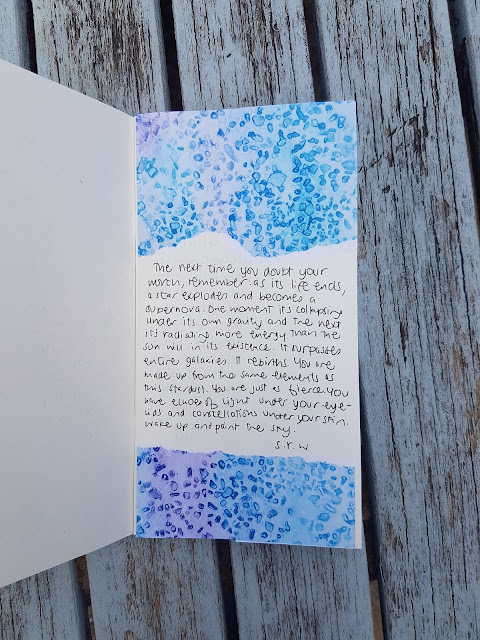 The next time you doubt your
worth, remember as its life ends,
a star explodes and becomes a
supernova. One moment its collapsing
under its own gravity and the next
its radiating more energy than the
sun will in its existence. It surpasses
entire galaxies. It rebirths. You are
made up from the same elements as
this stardust. You are just as fierce. You
have echoes of light under your eye-
lids and constellations under your skin.
Wake up and paint the sky.
S.R.W